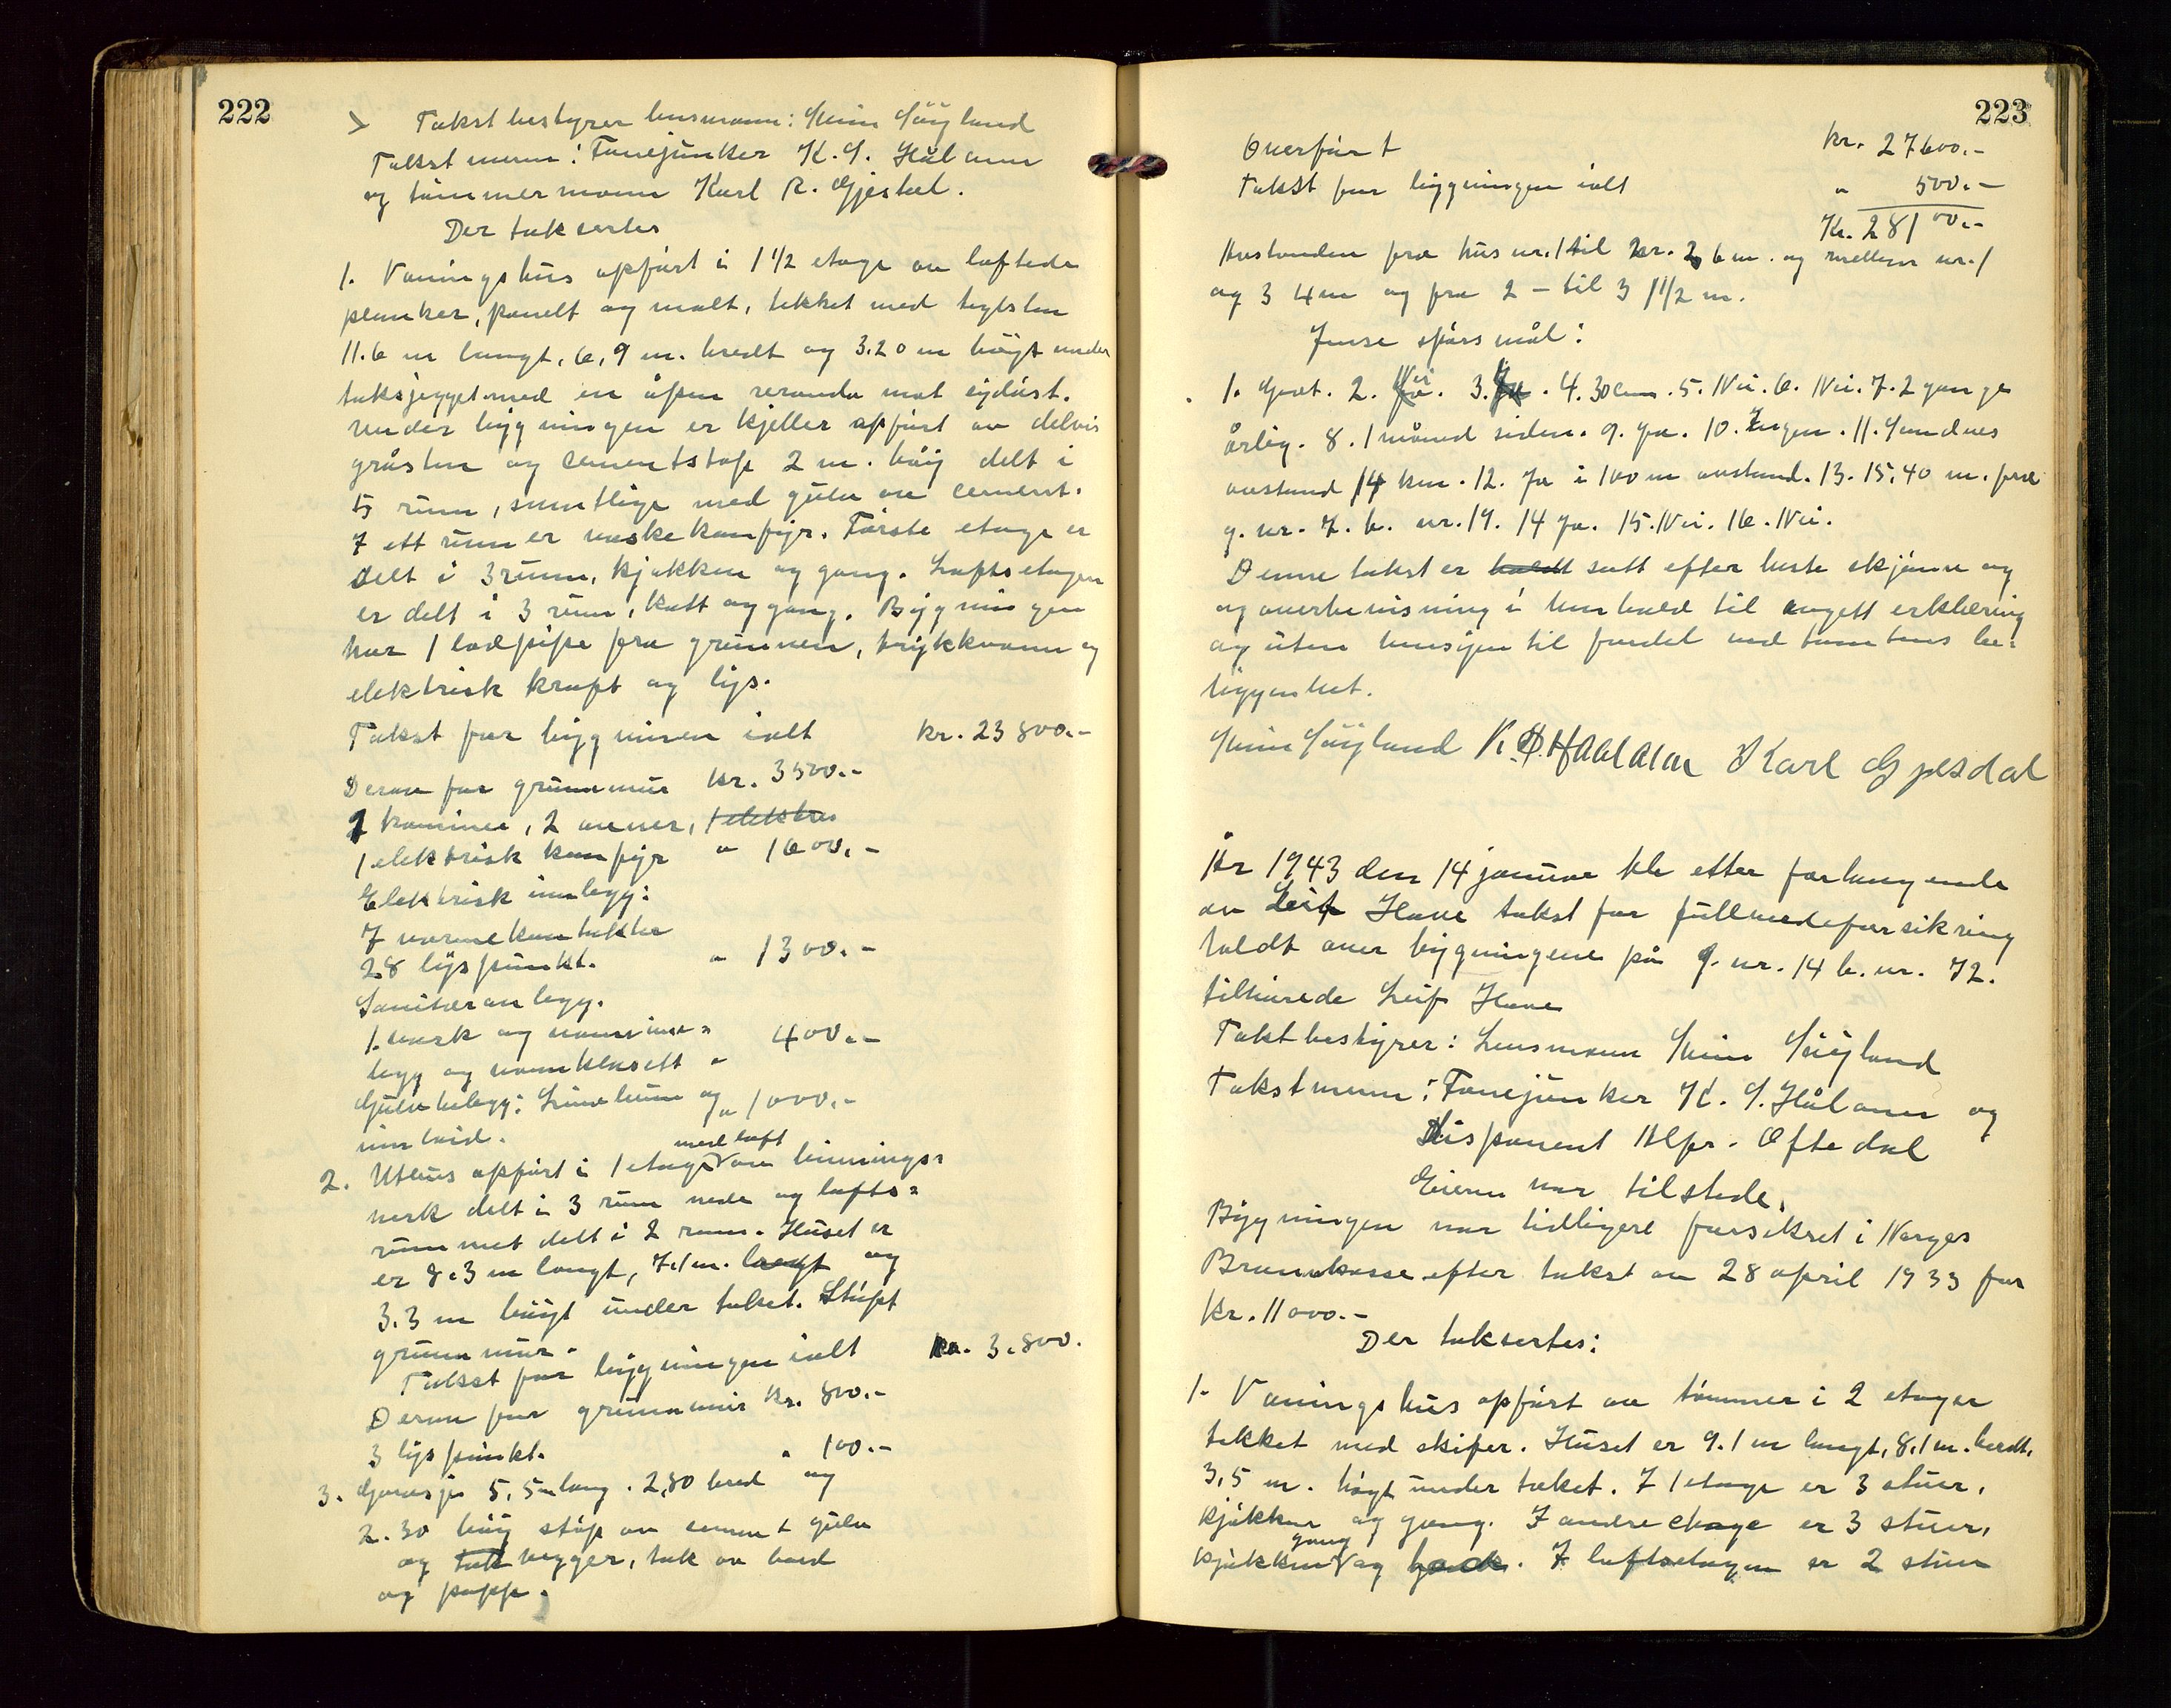 222
Takstbestyrer lensmann: Steim Søyland
Takstmenn: Fanejunker K. S. Håland
og tømmermann Karl R. Gjesdal.
Der taksertes
1. Våningshus opført i 1 1/2 etage av laftede
planker, panelt og malt, tekket med teglsten
11.6 m langt, 6,9 m. bredt og 3.20 m høigt under
takskjegget med en åpen veranda mot sydøst.
Under bygningen er kjeller opført av delvis
gråsten og cementstøp 2 m. høi delt i
5 rum, samtlige med gulv av cement.
I ett rum er vaskekomfyr. Første etage er
delt i 3 rum, kjøkken og gang. Loftsetagen
er delt i 3 rum, kott og gang. Bygningen
har 1 lodpipe fra grunnen, trykkvann og
elektrisk kraft og lys.
Takst for bygningen ialt kr. 23 800.-
Derav for grunnmur kr. 3500.-
1 kamine, 2 ovner, 1 elektris
1 elektrisk komfyr " 1600.-
Elektrisk innlegg:
7 varmekontakter
28 lyspunkt. " 1300.-
Sanitæranlegg.
1. vask og vanninn=
legg og vannklosett " 400.-
Gulvbelegg: Linoleum og " 1000.-
innlaid.
2. Uthus opført i 1 etage med loft av binnings=
verk delt i 3 rum nede og lofts=
rummet delt i 2 rum. Huset er
er 8.3 m langt, 7.1 m. bredt og
3.3 m høigt under taket. Støpt
grunnmur.
Takst for bygningen ialt kr. 3.800.
Derav for grunnmur kr. 800.-
3 lyspunkt. " 100.-
3. Garasje 5,5 m lang. 2,80 bred og
2.30 høi støp av cement gulv
og tak vegger, tak av bord
og papp.
223
Overført kr. 27600.-
Takst for bygningen ialt " 500.-
Kr. 28100.-
Avstanden fra hus nr. 1 til nr. 2 6 m. og mellem nr. 1
og 3 4 m og fra 2 - til 3 1 1/2 m.
Jmse spørsmål:
1. Godt. 2. Nei. 3. Ja. 4. 30 cm. 5. Nei. 6. Nei. 7. 2 gange
årlig. 8. 1 måned siden. 9. Ja. 10. Ingen. 11. Sandnes
avstand 14 km. 12. Ja i 100 m avstand. 13. 15,40 m. fra
g. nr. 7. b. nr. 19. 14 Ja. 15. Nei. 16. Nei.
Denne takst er holdt satt efter beste skjønn og
og overbevisning i henhold til avgitt erklæring
og uten hensyn til fordel ved tomtens be=
liggenhet.
Steim Søyland K. S. Haaland Karl Gjesdal
År 1943 den 14 januar ble etter forlangende
av Leif Hove takst for fullverdeforsikring
holdt over bygningene på g. nr. 14 b. nr. 72.
tilhørede Leif Hove
Takstbestyrer: Lensmann Steim Søyland
Takstmenn: Fanejunker K. S. Håland og
Disponent Alfr. Oftedal
Eieren var tilstede.
Bygningen var tidligere forsikret i Norges
Brannkasse efter takst av 28 april 1933 for
kr. 11000.-
Der taksertes:
1. Våningshus opført av tømmer i 2 etager
tekket med skifer. Huset er 9.1 m langt, 8,1 m. bredt,
3,5 m. høgt under taket. I 1 etage er 3 stuer,
kjøkken og gang. I andre etage er 3 stuer,
kjøkken gang og bad. I loftsetagen er 2 stuer